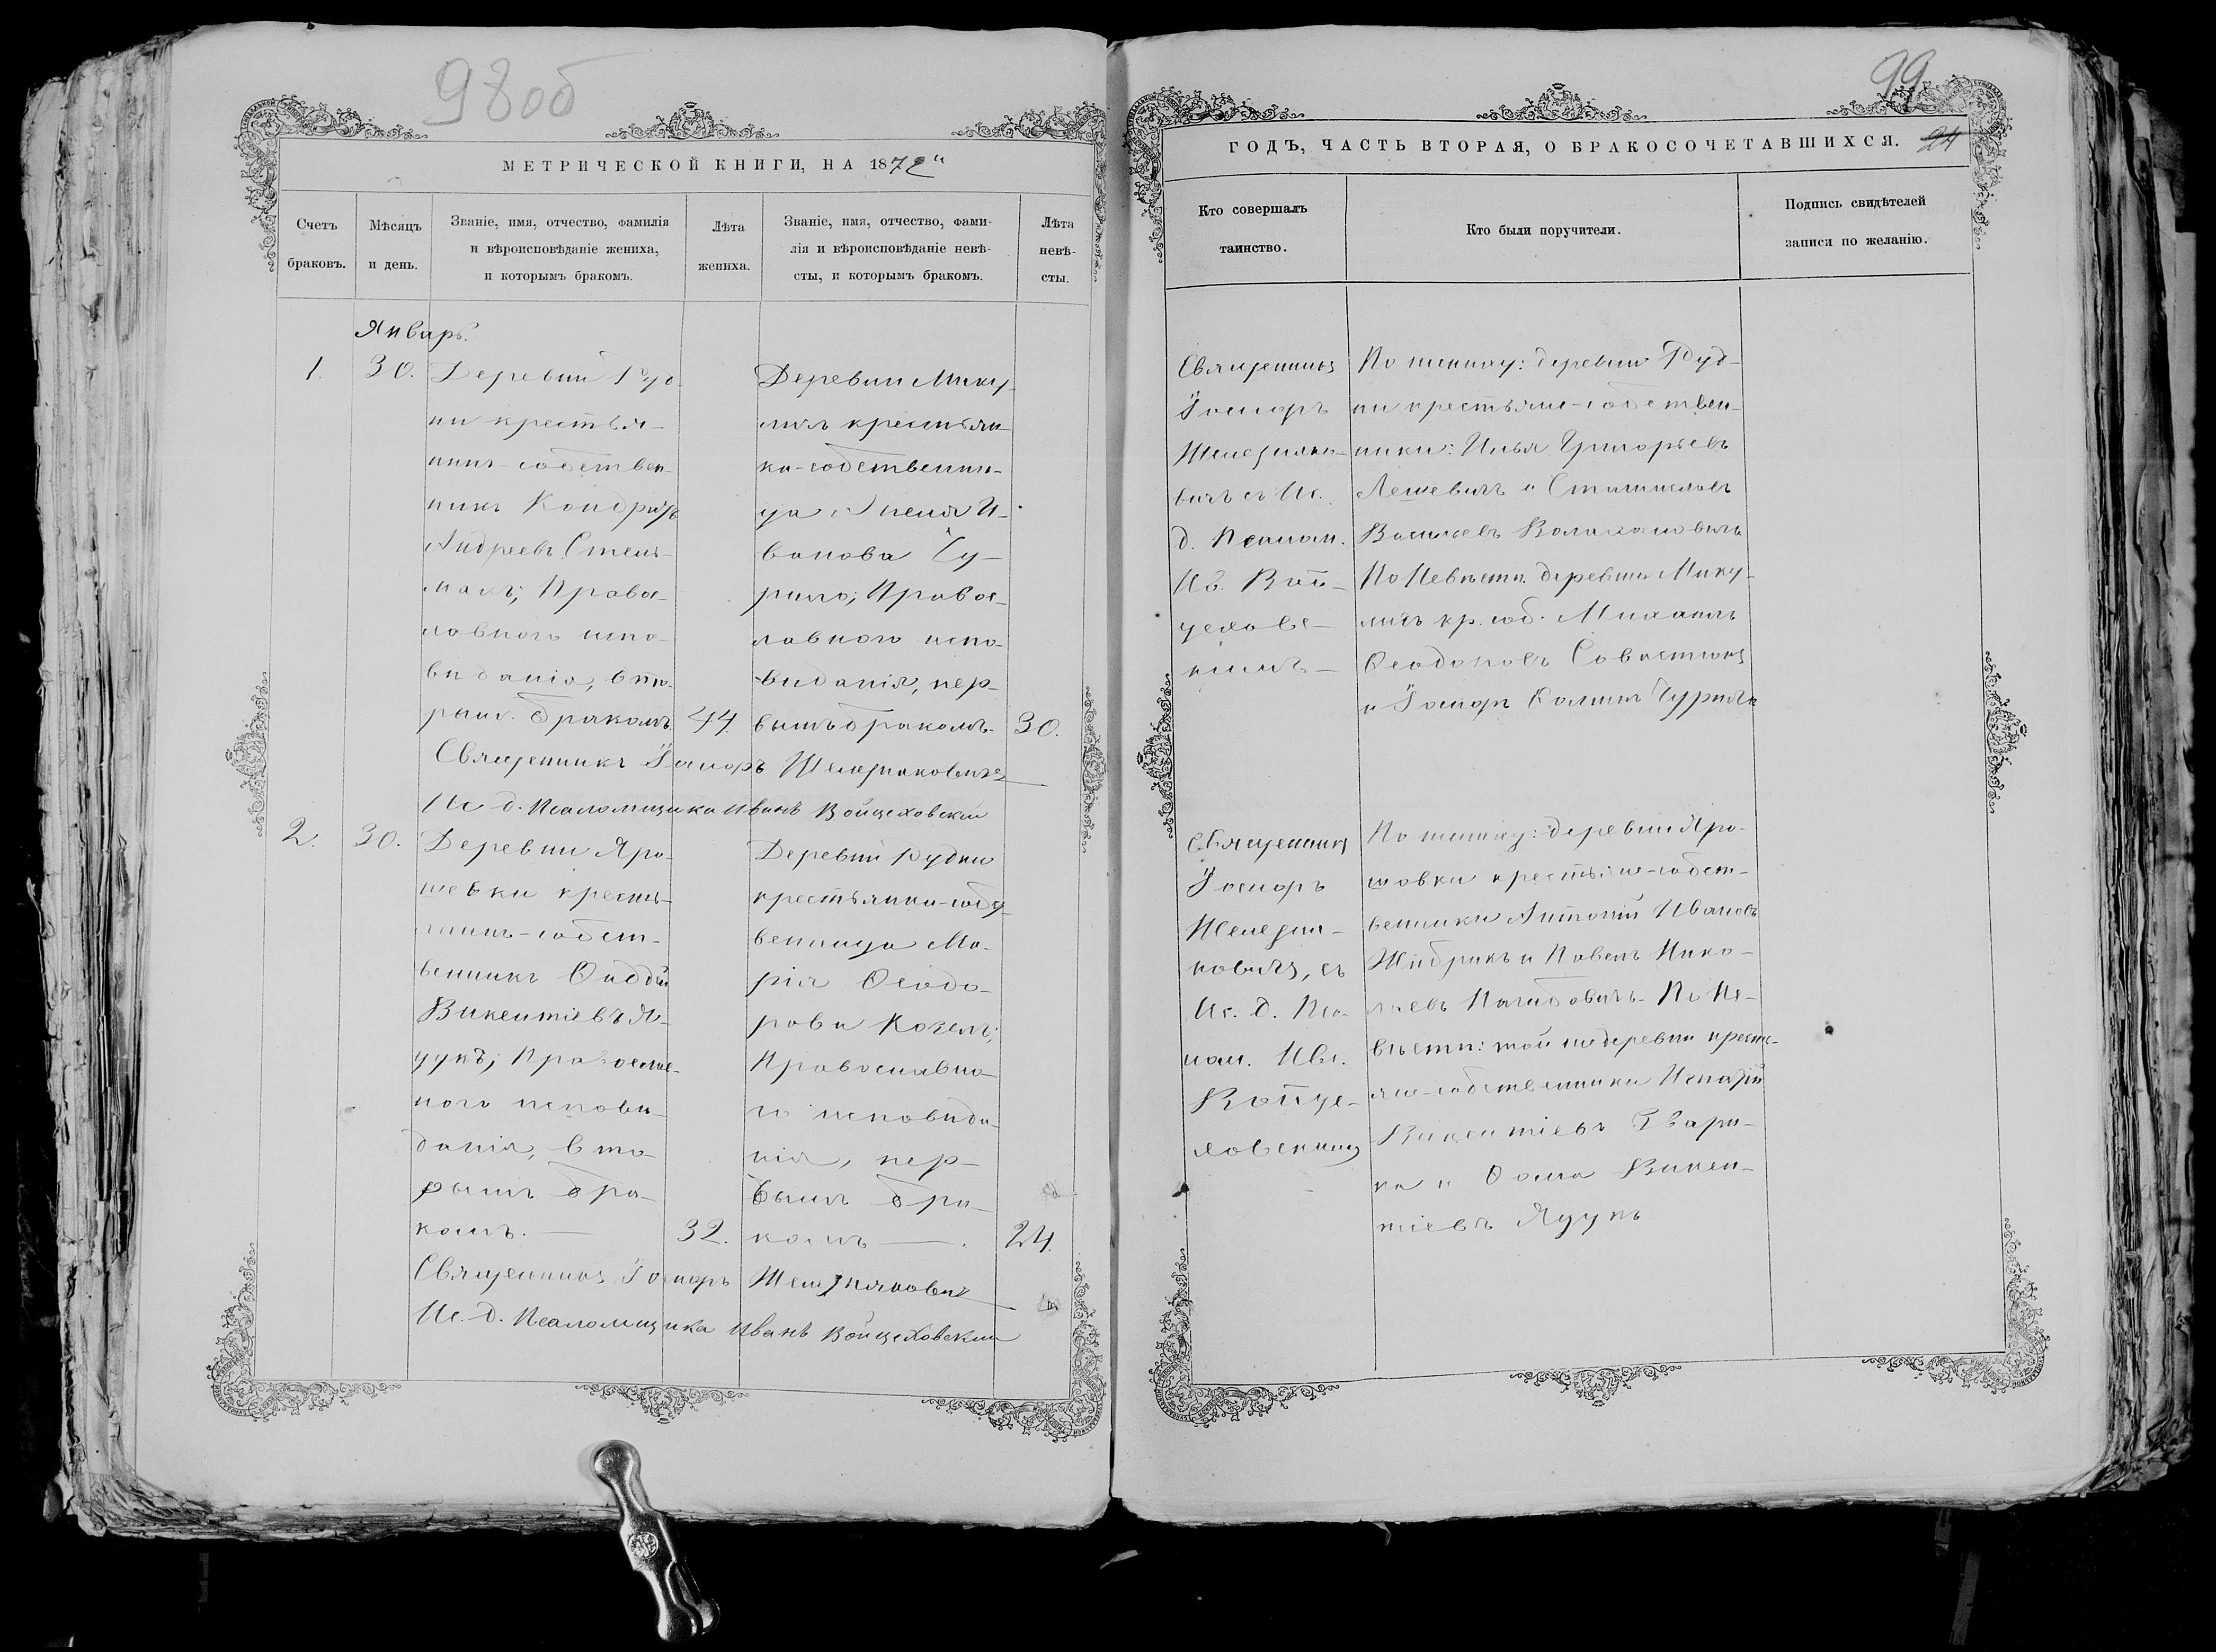 98 об
МЕТРИЧЕСКОЙ КНИГИ, НА 1872
Счетъ браковъ.
Мѣсяцъ и день.
Званіе, имя, отчество, фамилія и вѣроисповѣданіе жениха, и которымъ бракомъ.
Лѣта жениха.
Званіе, имя, отчество, фами-
лія и вѣроисповѣданіе невѣ-
сты, и которымъ бракомъ.
Лѣта невѣ-
сты.
Январь.
1.
30.
Деревни Руд
ни крестья-
нинъ-собствен-
никъ Кондратъ
Андреевъ Стель-
махъ; Правос-
лавного испо-
виданія, вто-
рым. бракомъ.
44.
Деревни Мику-
личъ крестьян-
ка-собственни-
ца И-
ванова Чу-
рило; Правос-
лавного испо-
виданія, пер-
вымъ бракомъ.
30.
Священникъ Іосифъ
Ис. д. Псаломщика Иванъ Войцеховскій
2.
30.
Деревни Яро-
шевки кресть-
янинъ-собст-
венникъ Фаддей
Викентіевъ Я-
цукъ; Православ-
ного испови-
данія, вто-
рымъ бра-
комъ.
32.
Деревни Рудни
крестьянка-собст
венница Ма-
рія Ѳеодо-
рова Козелъ;
Православно-
го исповида-
нія, пер-
вымъ бра-
комъ
24.
Священникъ Іосифъ
Ис. д. Псаломщика Иванъ Войцеховскій
99
ГОДЪ, ЧАСТЬ ВТОРАЯ, О БРАКОСОЧЕТАВШИХСЯ.
24
Кто совершалъ
таинство.
Кто были поручители.
Подпись свидѣтелей
записи по желанію.
Священникъ
Іосифъ
вичъ съ Ис.
д. Псалом.
Ив. Вой-
цехове-
кимъ
По жениху: деревни Руд-
ни крестьяне-собствен-
ники: Илья Григорьевъ
Лешевичъ и Станиславъ
Васильевъ
По Невѣсти: деревни Мику-
личъ кр. соб. Михаилъ
Ѳеодоровъ
и Іосифъ Чурило
Священникъ
Іосифъ
ковичъ, съ
Ис. д. Пса-
лом. Ив.
Войце-
ховскимъ
По жениху: деревни Яро-
шовки крестьяне-собст-
венники Антоній Ивановъ
и Павелъ Нико-
лаевъ По Не-
вѣсти: той же деревни кресть-
яне-собственники Игнатій
Викентіевъ
ка и Ѳома Викен-
тіевъ Яцукъ